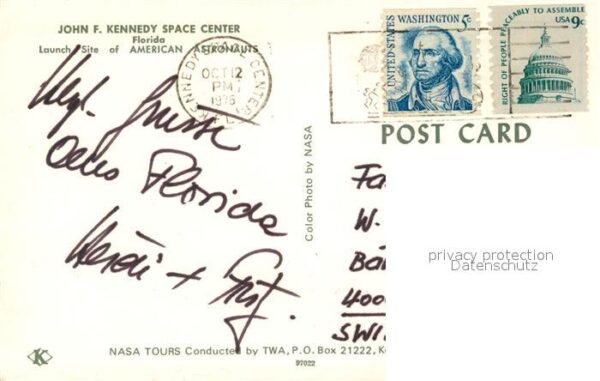 JOHN F. KENNEDY SPACE CENTER
Florida
Launch Site of AMERICAN ASTRONAUTS
KENNEDY SPACE CENTER, FL
OCT 12
PM
1976
WASHINGTON 5c
UNITED STATES
RIGHT OF PEOPLE PEACEABLY TO ASSEMBLE
USA 9c
POST CARD
Hzl. Grüsse
aus Florida
Heidi + Fritz.
Color Photo by NASA
Fa
W.
Ba
4000
SWI
privacy protection
Datenschutz
K
NASA TOURS Conducted by TWA, P.O. Box 21222, K
97022